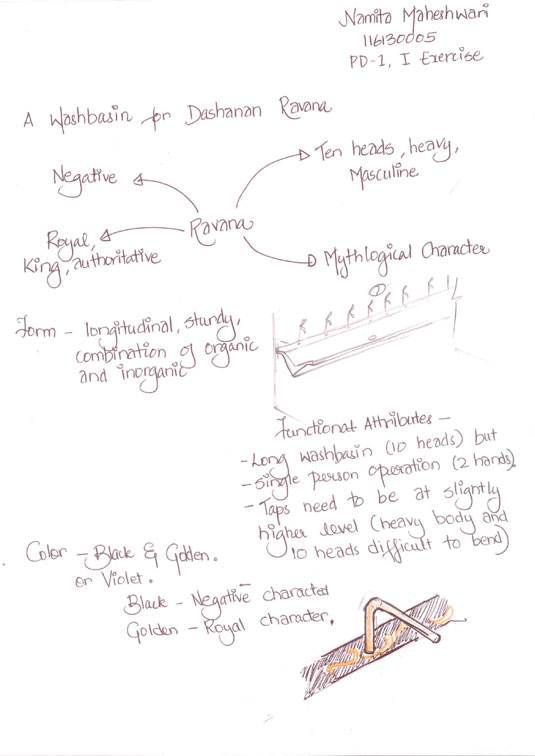 Namita Maheshwari
116130005
PD-1, I Exercise
A Washbasin for Dashanan Ravana
Negative
Ten heads, heavy,
Masculine
Ravana
Royal,
King, authoritative
Mythlogical Character
Form - longitudinal, sturdy,
combination of organic
and inorganic
Functional Attributes -
- Long washbasin (10 heads) but
- Single person operation (2 hands)
- Taps need to be at slightly
higher level (heavy body and
10 heads difficult to bend)
Color - Black & Golden.
or Violet.
Black - Negative character
Golden - Royal character.